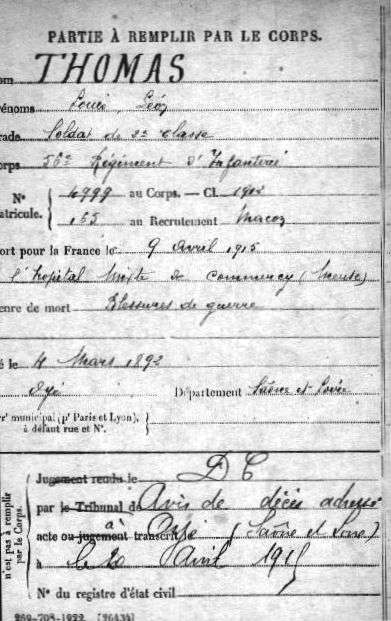 PARTIE À REMPLIR PAR LE CORPS.
om THOMAS
rénoms Louis, Léon
rade Soldat de 2e classe
orps 56e Régiment d'Infanterie
N° 4999 au Corps. — Cl. 1912
atricule. 155 au Recrutement Macon
ort pour la France le 9 Avril 1915
l'hopital mixte de commercy (Meuse)
enre de mort Blessures de guerre
é le 4 Mars 1892
Oyé Département Saône et Loire
rt municipal (pr Paris et Lyon),
à défaut rue et N°.
Jugement rendu le D C
par le Tribunal de Avis de décès adressé
acte ou jugement transcrit à Oyé (Saône et Loire)
à le 20 Avril 1915
N° du registre d'état civil
n'est pas à remplir
par le Corps.
269-708-1922. [26434]